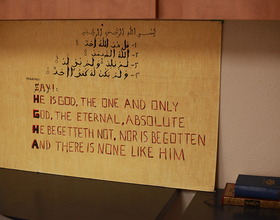 بسم الله الرحمن الرحيم
١- قل هو الله أحد
٢- الله الصمد
٣- لم يلد ولم يولد
٤- ولم يكن له كفوا أحد
SAY!:
HE IS GOD, THE ONE AND ONLY
GOD, THE ETERNAL, ABSOLUTE
HE BEGETTETH NOT, NOR IS BEGOTTEN
AND THERE IS NONE LIKE HIM